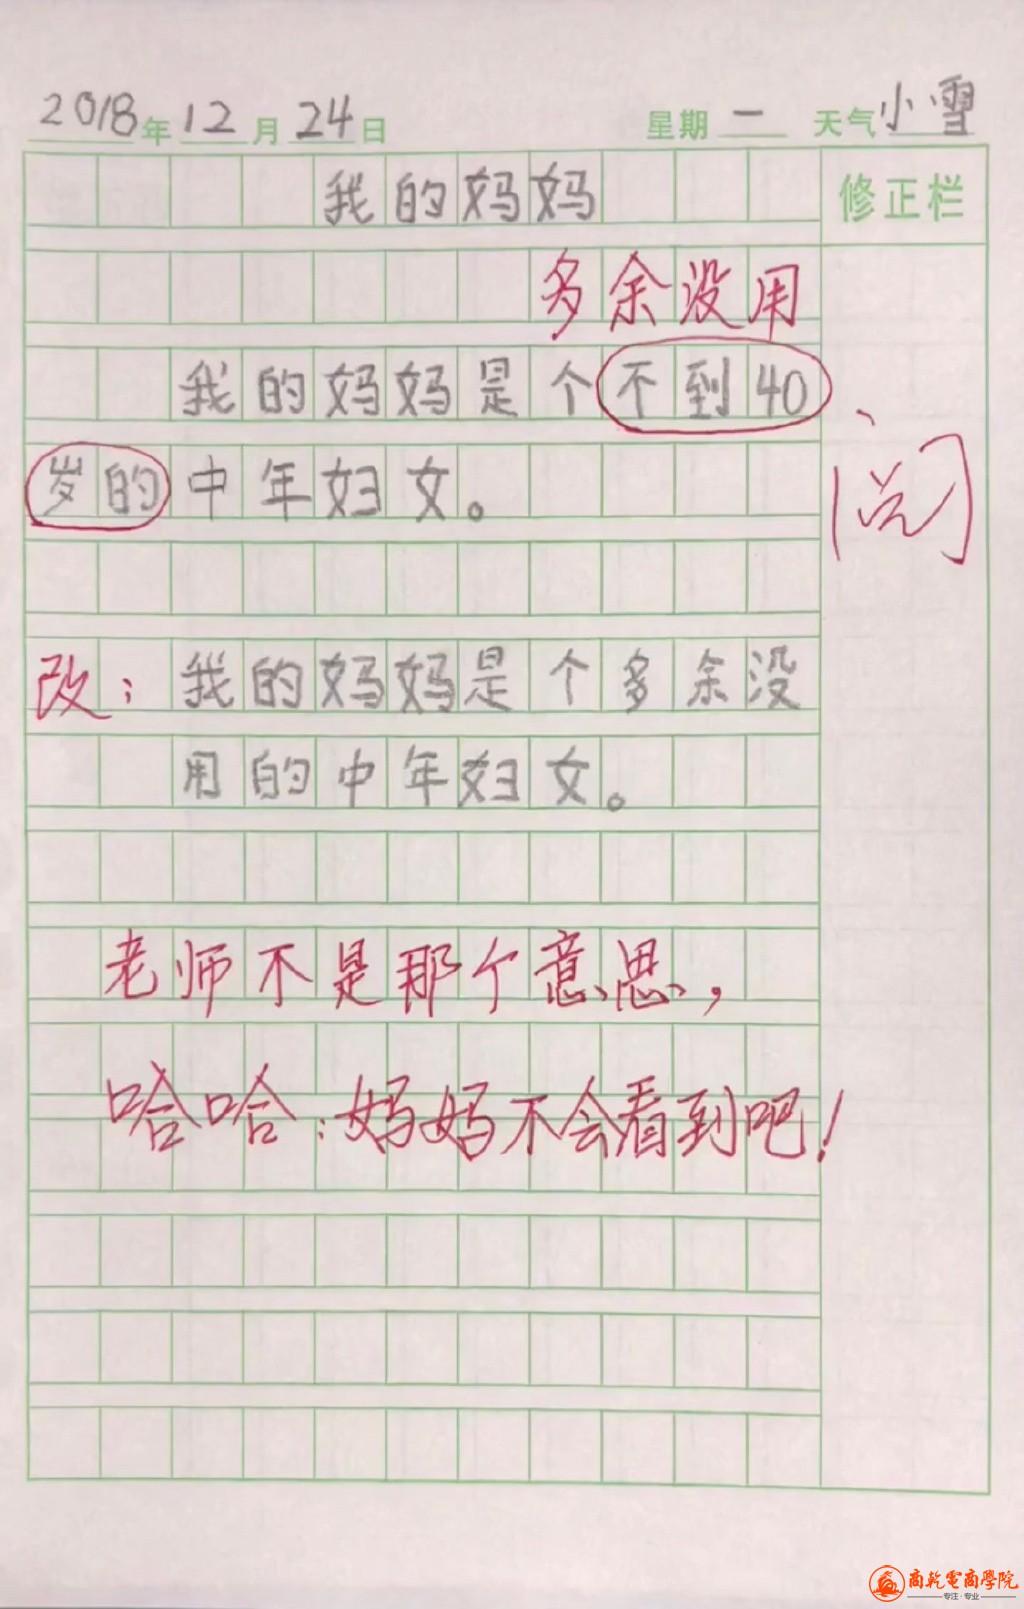 2018年12月24日 星期一 天气小雪
我的妈妈 修正栏
多余没用
我的妈妈是个不到40
岁的中年妇女。
阅
改:我的妈妈是个多余没
用的中年妇女。
老师不是那个意思,
哈哈:妈妈不会看到吧!
商乾电商學院
专注·专业